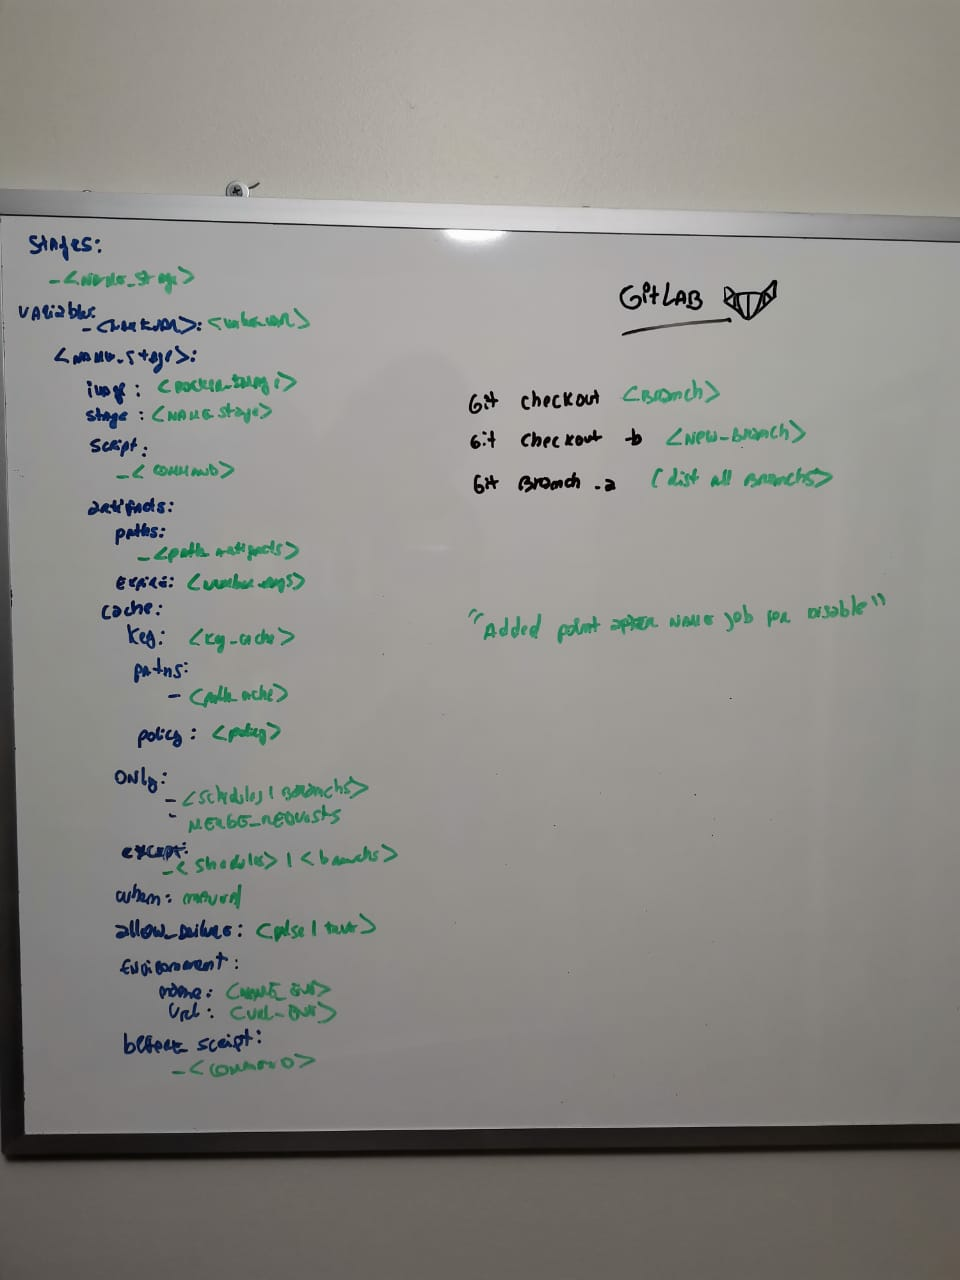 STAGES:
- <NAME_Stage>
VARiables
<NAME_Stage>:
image: <DOCKER_Image>
stage: <NAME_stage>
script:
- <COMMAND>
artifacts:
paths:
- <path artifacts>
Expire: <number_days>
Cache:
Key: <Key_cache>
paths:
- <path_cache>
policy: <policy>
ONly:
- <Schedules | Branchs>
- MERGE_REQUESTS
except:
- <Shedules> | <branchs>
when: manual
allow_Failure: <false | true>
Environment:
name: <NAME_ENV>
Url: <URL-ENV>
before script:
- <COMMAND>
GitLAB
Git checkout <Branch>
Git checkout -b <New-Branch>
Git Branch -a (List all Branchs>
"Added point after NAME job for Disable"